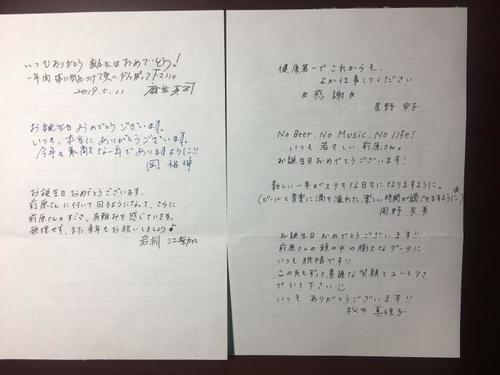 いつもありがとう お誕生日おめでとう!
一年間 体に気をつけて
2019.5.11
お誕生日おめでとうございます。
いつも、本当にありがとうございます。
今年も素敵な一年でありますように!!
岡
お誕生日おめでとうございます。
前原さんに付いて回るようになって、さらに
前原さんのすごさ、有難みを感じています。
無理せず、また来年もお祝いしましょう♪
岩渕
健康第一でこれからも、
よか仕事してください
☆感謝☆
星野
No Beer, No Music, No life!
いつも若々しい前原さん。
お誕生日おめでとうございます!
新しい一年がステキな日々になりますように。
(ビールと音楽に満ち溢れた、楽しい時間が過ごせますように)
岡野
お誕生日おめでとうございます!!
前原さんの頭の中の膨大なデータに
いつも脱帽です!!
この先もずっと、素適な笑顔とユーモアさ
でいて下さい
いつもありがとうございます!!
松下 真理子